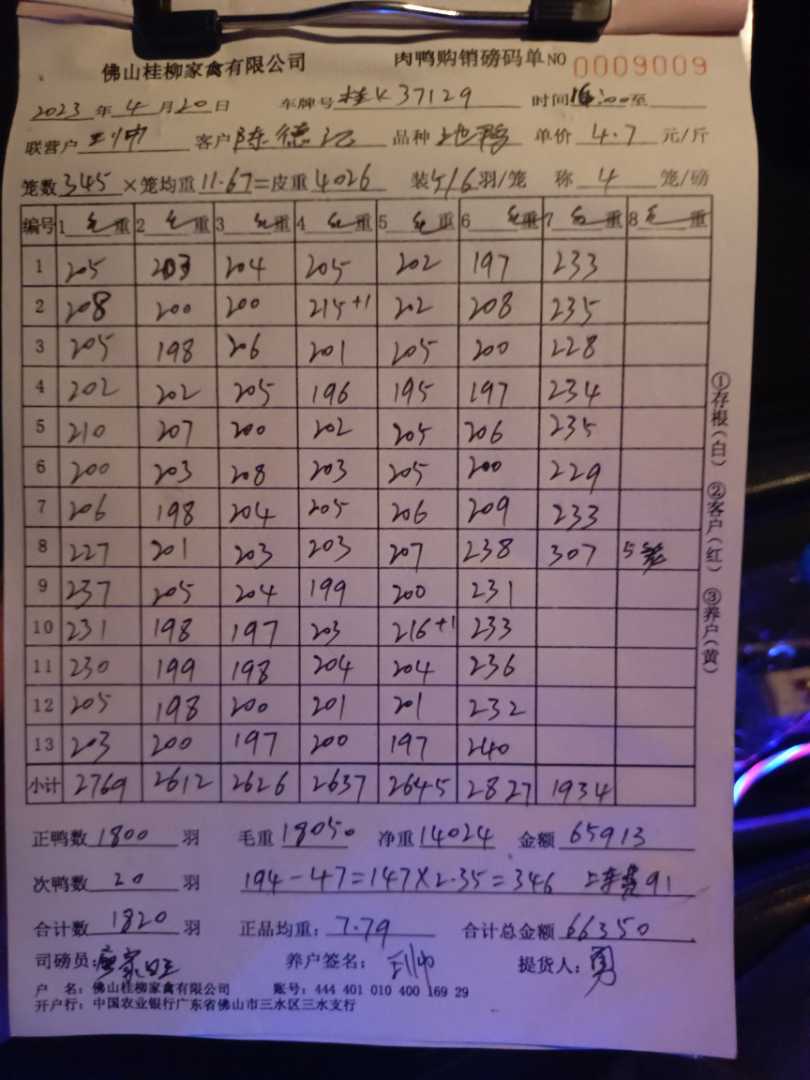 佛山桂柳家禽有限公司 肉鸭购销磅码单 NO 0009009
2023 年 4 月 20 日 车牌号 桂K 37129 时间 16:00 至
联营户 客户 陈德江 品种 土鸭 单价 4.7 元/斤
笼数 345 × 笼均重 11.67 = 皮重 4026 装 5/6 羽/笼 称 4 笼/磅
编号 1 毛重 2 毛重 3 毛重 4 毛重 5 毛重 6 毛重 7 毛重 8 毛重
1 205 203 204 205 202 197 233
2 208 200 200 215+1 202 208 235
3 205 198 206 201 205 200 228
4 202 202 205 196 195 197 234
5 210 207 200 202 205 206 235
6 200 203 208 203 205 200 229
7 206 198 204 205 206 209 233
8 227 201 203 203 207 238 307 5笼
9 237 205 204 199 200 231
10 231 198 197 203 216+1 233
11 230 199 198 204 204 236
12 205 198 200 201 201 232
13 203 200 197 200 197 240
小计 2769 2612 2626 2637 2645 2827 1934
正鸭数 1800 羽 毛重 18050 净重 14024 金额 65913
次鸭数 20 羽 194-47=147×2.35=346 上车费91
合计数 1820 羽 正品均重: 7.79 合计总金额 66350
司磅员: 养户签名: 提货人: 勇
户 名: 佛山桂柳家禽有限公司 账号: 444 401 010 400 169 29
开户行: 中国农业银行广东省佛山市三水区三水支行
①存根(白) ②客户(红) ③养户(黄)